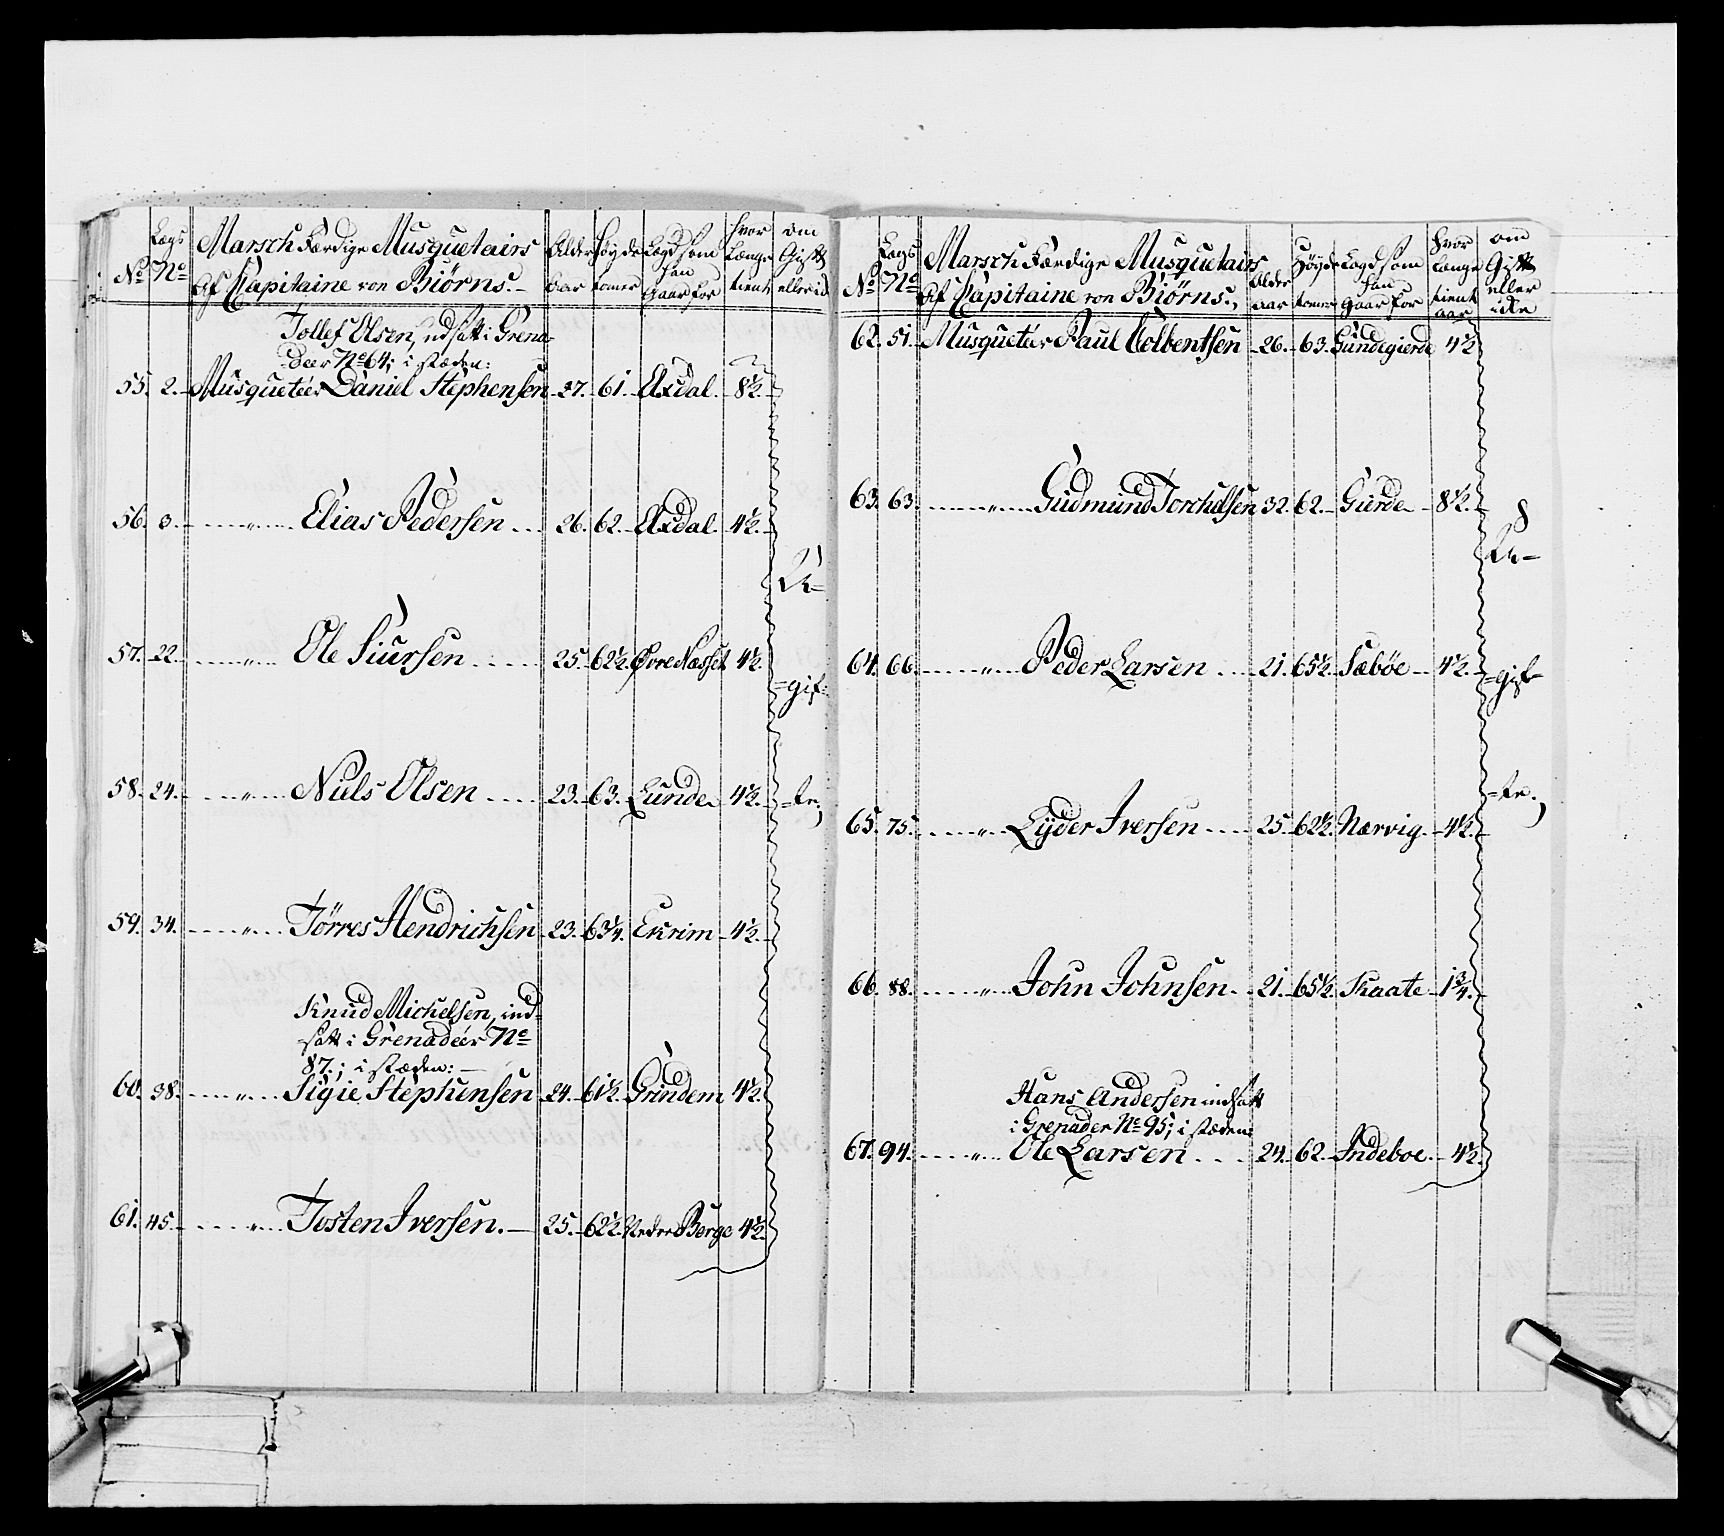 No Lægs No Marsch Færdige Musquetairs Af Capitaine von Biørns. Alder Aar Høyde tomer Lægd som han Gaar for hvor Længe tient om Gift eller id
Tollef Olsen, udsatt i Grena-
deer No 64; i stæden:
55. 2. Musqueteer Daniel Stephensen 27. 61. Axdal. 8½.
56. 3. " Elias Pedersen 26. 62. Axdal. 4½.
U=
57. 22. " Ole Siursen 25. 62½. Øvre Næsset 4½.
=gif=
58. 24. " Niels Olsen 23. 63. Lunde 4½.
=te.
59. 34. " Tørres Hendrichsen 23. 63¼. Ekrim 4½.
Knud Michelsen, ind-
satt i Grenadeer No
87.; i stæden:
60. 38. " Sigie Stephensen 24. 61½. Grindem 4½.
61. 45. " Tosten Iversen. 25. 62½. Nedre Berge 4½.
No Lægs No Marsch Færdige Musquetairs Af Capitaine von Biørns. Alder aar Høyde tomer Lægd som han Gaar for Hvor længe tient aar om Gift eller ikke
62. 51. Musqueteer Paul Colbentsen 26. 63. Gundegierde 4½
63. 63. " Gudmund Torchelsen 32. 62. Gierde 8½.
U=
64. 66. " Peder Larsen 21. 65½. Sæbøe 4½.
=gif=
=te.
65. 75. " Lyder Iversen 25. 62½. Nærvig. 4½.
66. 88. " John Johnsen 21. 65½. Skaate 1¾.
Hans Andersen indsatt
i Grenader No 95; i stæden
67. 94. " Ole Larsen 24. 62. Indeboe. 4½.